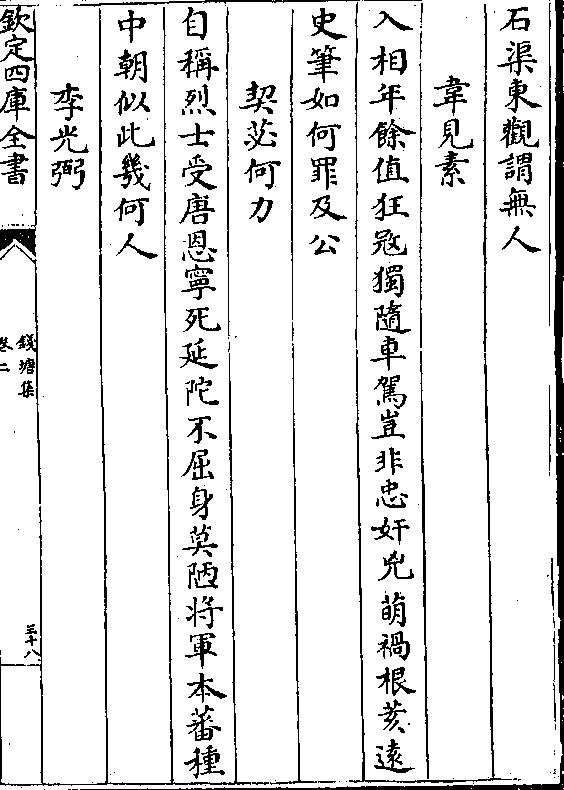 石渠東觀謂無人
韋見素
入相年餘值狂㓂獨隨車駕豈非忠奸兇萌禍根荄遠
史筆如何罪及公
契苾何力
自稱烈士受唐恩寧死延陀不屈身莫陋將軍本蕃種
中朝似此幾何人
李光弼
欽定四庫全書
錢塘集
卷二
三十八